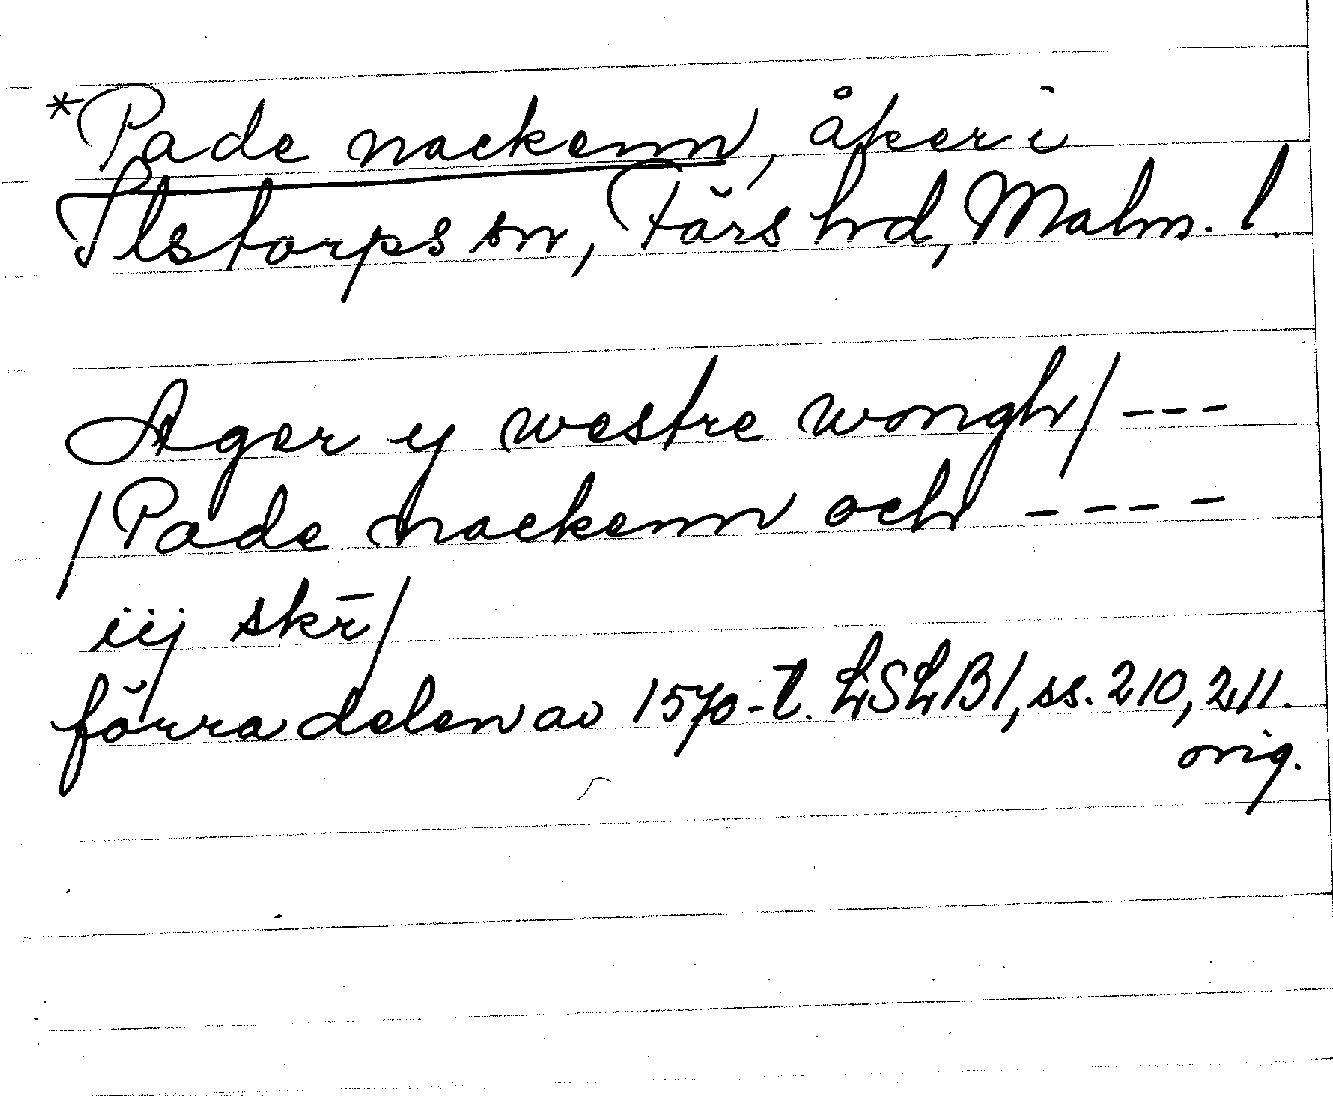 *Pade nackenn, åker i
Ilstorps sn, Färs hd, Malm. l.
Ager y westre wongh/ ---
/Pade nackenn och ----
iij skr̄/
förra delen av 1570-t. LSLB1, ss. 210, 211.
orig.